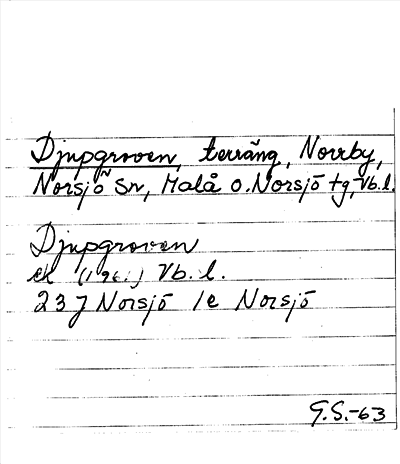 Djupgroven, terräng, Norrby,
Norsjö sn, Malå o. Norsjö tg, Vb. l.
Djupgroven
ek (1961) Vb. l.
23 J Norsjö 1e Norsjö
G.S.-63